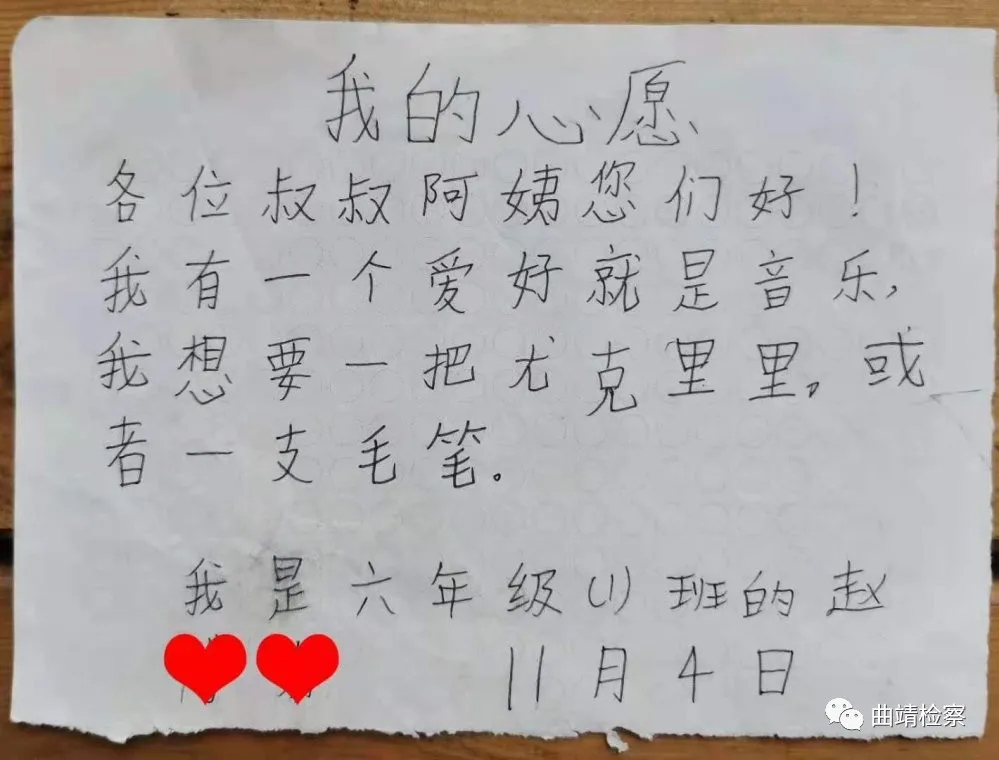 我的心愿
各位叔叔阿姨您们好！
我有一个爱好就是音乐，
我想要一把尤克里里。或
者一支毛笔。
我是六年级(1)班的赵
11月4日
曲靖检察